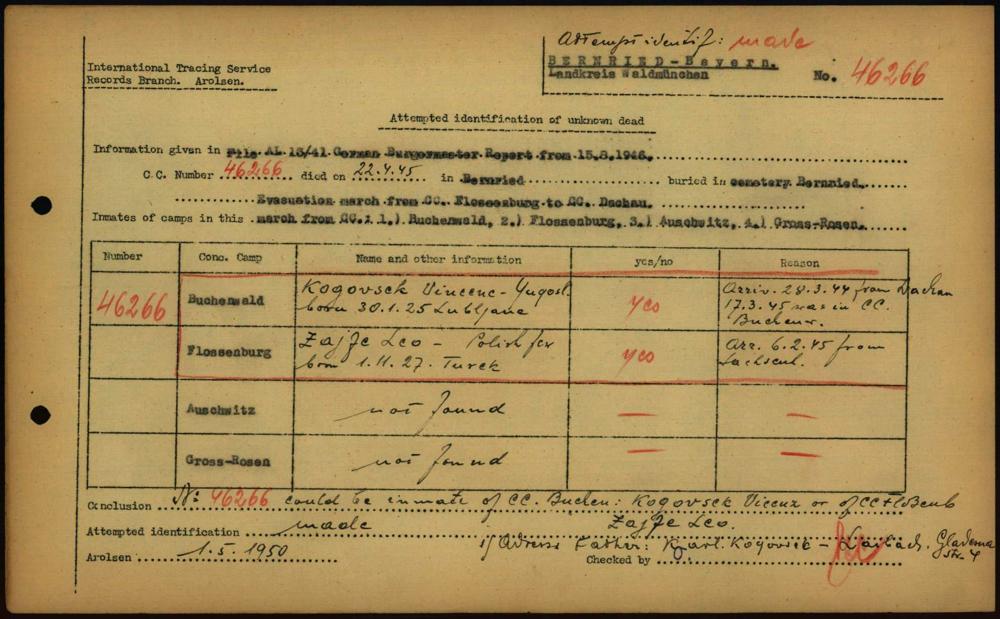 International Tracing Service
Records Branch. Arolsen.
Attempt identif: made
BERNRIED-Bayern.
Landkreis Waldmünchen
No. 46266
Attempted identification of unknown dead
Information given in File AL 13/41 German Burgermaster Report from 15.8.1946.
C.C. Number 46266 died on 22.4.45 in Bernried buried in cemetery Bernried.
Evasuation march from CC. Flossenburg to CC. Dachau.
Inmates of camps in this march from CC.: 1.) Buchenwald, 2.) Flossenburg, 3.) Auschwitz, 4.) Gross-Rosen.
Number Conc. Camp Name and other information yes/no Reason
46266
Buchenwald
Kogovsek Vincenc - Yugosl.
born 30.1.25 Lubljana
yes
Arriv. 28.3.44 from Dachau
17.3.45 was in CC.
Buchenw.
Flossenburg
Zajfe Leo - Polish
born 1.11.27. Turek
yes
Arr. 6.2.45 from
Sachsenh.
Auschwitz not found — —
Gross-Rosen not found — —
Conclusion No: 46266 could be inmate of CC. Buchen: Kogovsek Vicenz or of CC
Attempted identification made Zajfe Leo.
Arolsen 1.5.1950
Adress Father: Karl Kogovsek - Laibach,
str. 4
Checked by